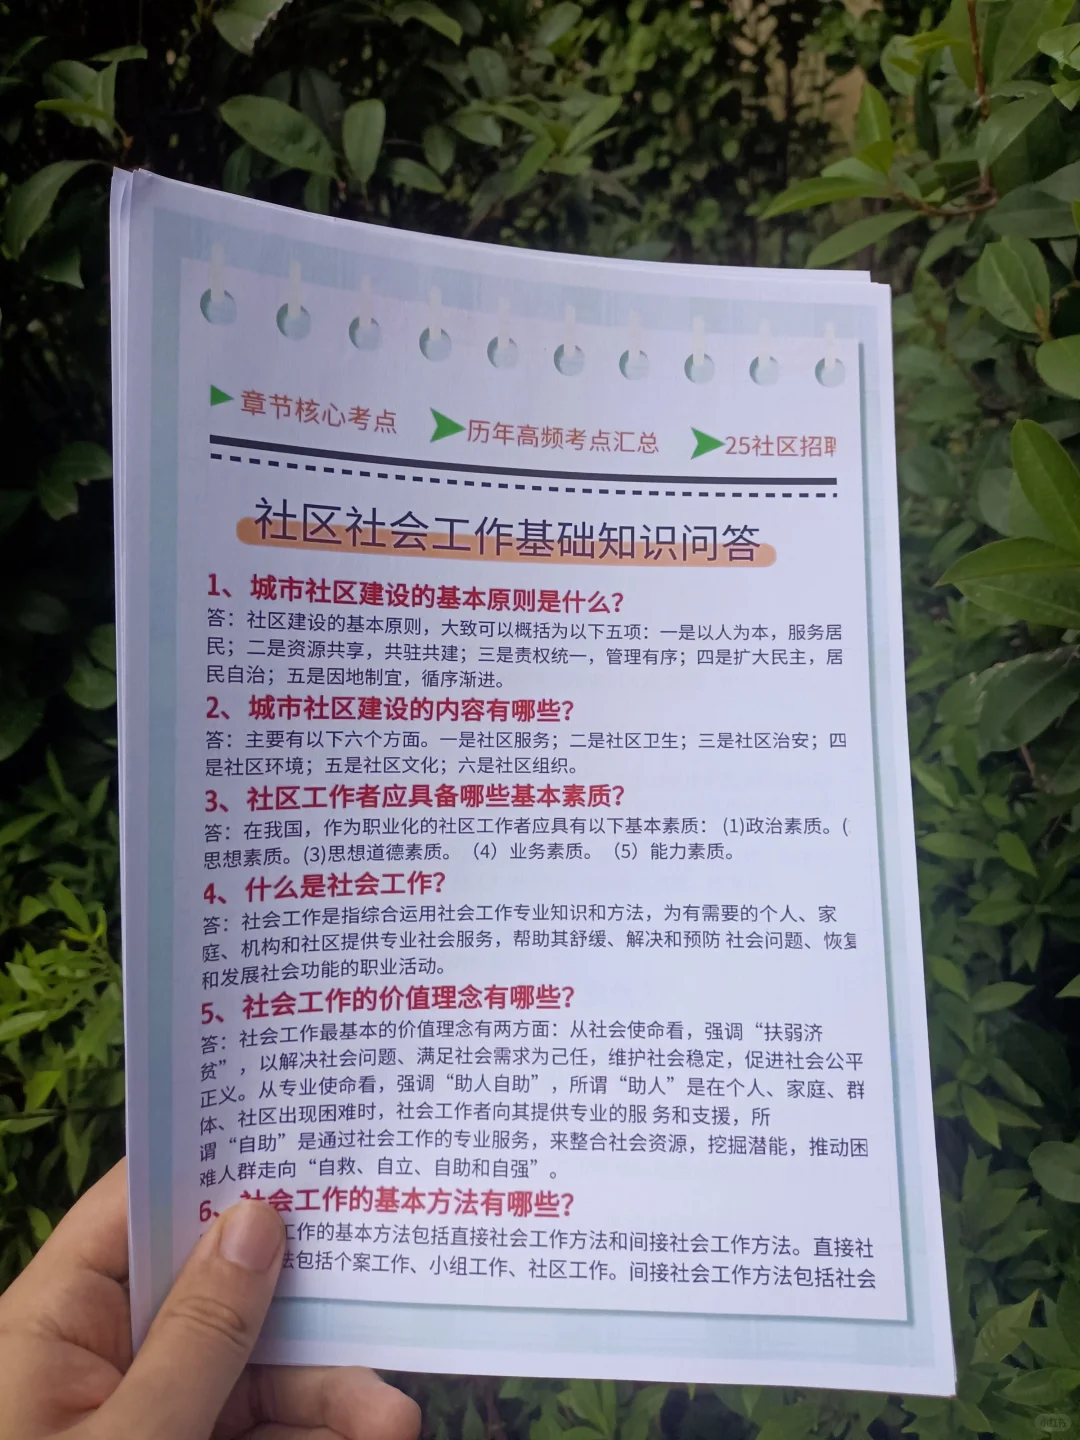 章节核心考点 历年高频考点汇总 25社区招聘
社区社会工作基础知识问答
1、城市社区建设的基本原则是什么?
答：社区建设的基本原则，大致可以概括为以下五项：一是以人为本，服务居
民；二是资源共享，共驻共建；三是责权统一，管理有序；四是扩大民主，居
民自治；五是因地制宜，循序渐进。
2、城市社区建设的内容有哪些?
答：主要有以下六个方面。一是社区服务；二是社区卫生；三是社区治安；四
是社区环境；五是社区文化；六是社区组织。
3、社区工作者应具备哪些基本素质?
答：在我国，作为职业化的社区工作者应具有以下基本素质： (1)政治素质。(
思想素质。(3)思想道德素质。（4）业务素质。（5）能力素质。
4、什么是社会工作?
答：社会工作是指综合运用社会工作专业知识和方法，为有需要的个人、家
庭、机构和社区提供专业社会服务，帮助其舒缓、解决和预防 社会问题、恢复
和发展社会功能的职业活动。
5、社会工作的价值理念有哪些?
答：社会工作最基本的价值理念有两方面：从社会使命看，强调“扶弱济
贫”，以解决社会问题、满足社会需求为己任，维护社会稳定，促进社会公平
正义。从专业使命看，强调“助人自助”，所谓“助人”是在个人、家庭、群
体、社区出现困难时，社会工作者向其提供专业的服 务和支援，所
谓“自助”是通过社会工作的专业服务，来整合社会资源，挖掘潜能，推动困
难人群走向“自救、自立、自助和自强”。
6、社会工作的基本方法有哪些?
工作的基本方法包括直接社会工作方法和间接社会工作方法。直接社
法包括个案工作、小组工作、社区工作。间接社会工作方法包括社会